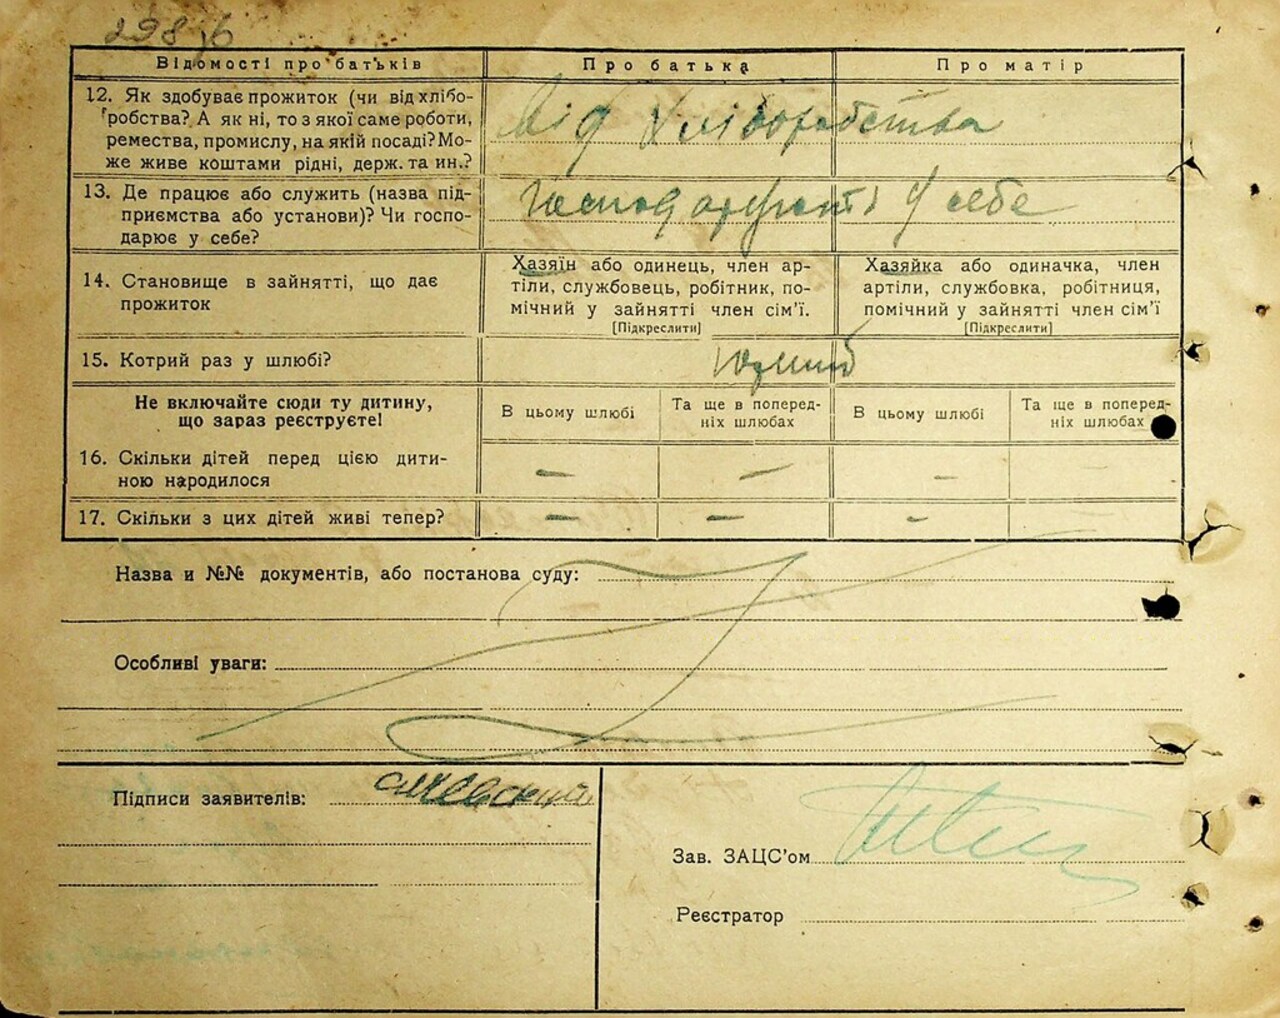 298 зб
Відомості про батьків
Про батька
Про матір
12. Як здобуває прожиток (чи від хлібо-
робства? А як ні, то з якої саме роботи,
ремества, промислу, на якій посаді? Мо-
же живе коштами рідні, держ. та ин.?
від хліборобства
13. Де працює або служить (назва під-
приємства або установи)? Чи госпо-
дарює у себе?
у себе
14. Становище в зайнятті, що дає
прожиток
Хазяїн або одинець, член ар-
тіли, службовець, робітник, по-
мічний у зайнятті член сім'ї.
[Підкреслити]
Хазяйка або одиначка, член
артіли, службовка, робітниця,
помічний у зайнятті член сім'ї
[Підкреслити]
15. Котрий раз у шлюбі?
Не включайте сюди ту дитину,
що зараз реєструєте!
В цьому шлюбі
Та ще в поперед-
ніх шлюбах
В цьому шлюбі
Та ще в поперед-
ніх шлюбах
16. Скільки дітей перед цією дити-
ною народилося
— — —
17. Скільки з цих дітей живі тепер?
— — —
Назва и №№ документів, або постанова суду:
Особливі уваги:
Підписи заявителів:
Зав. ЗАЦС'ом
Реєстратор